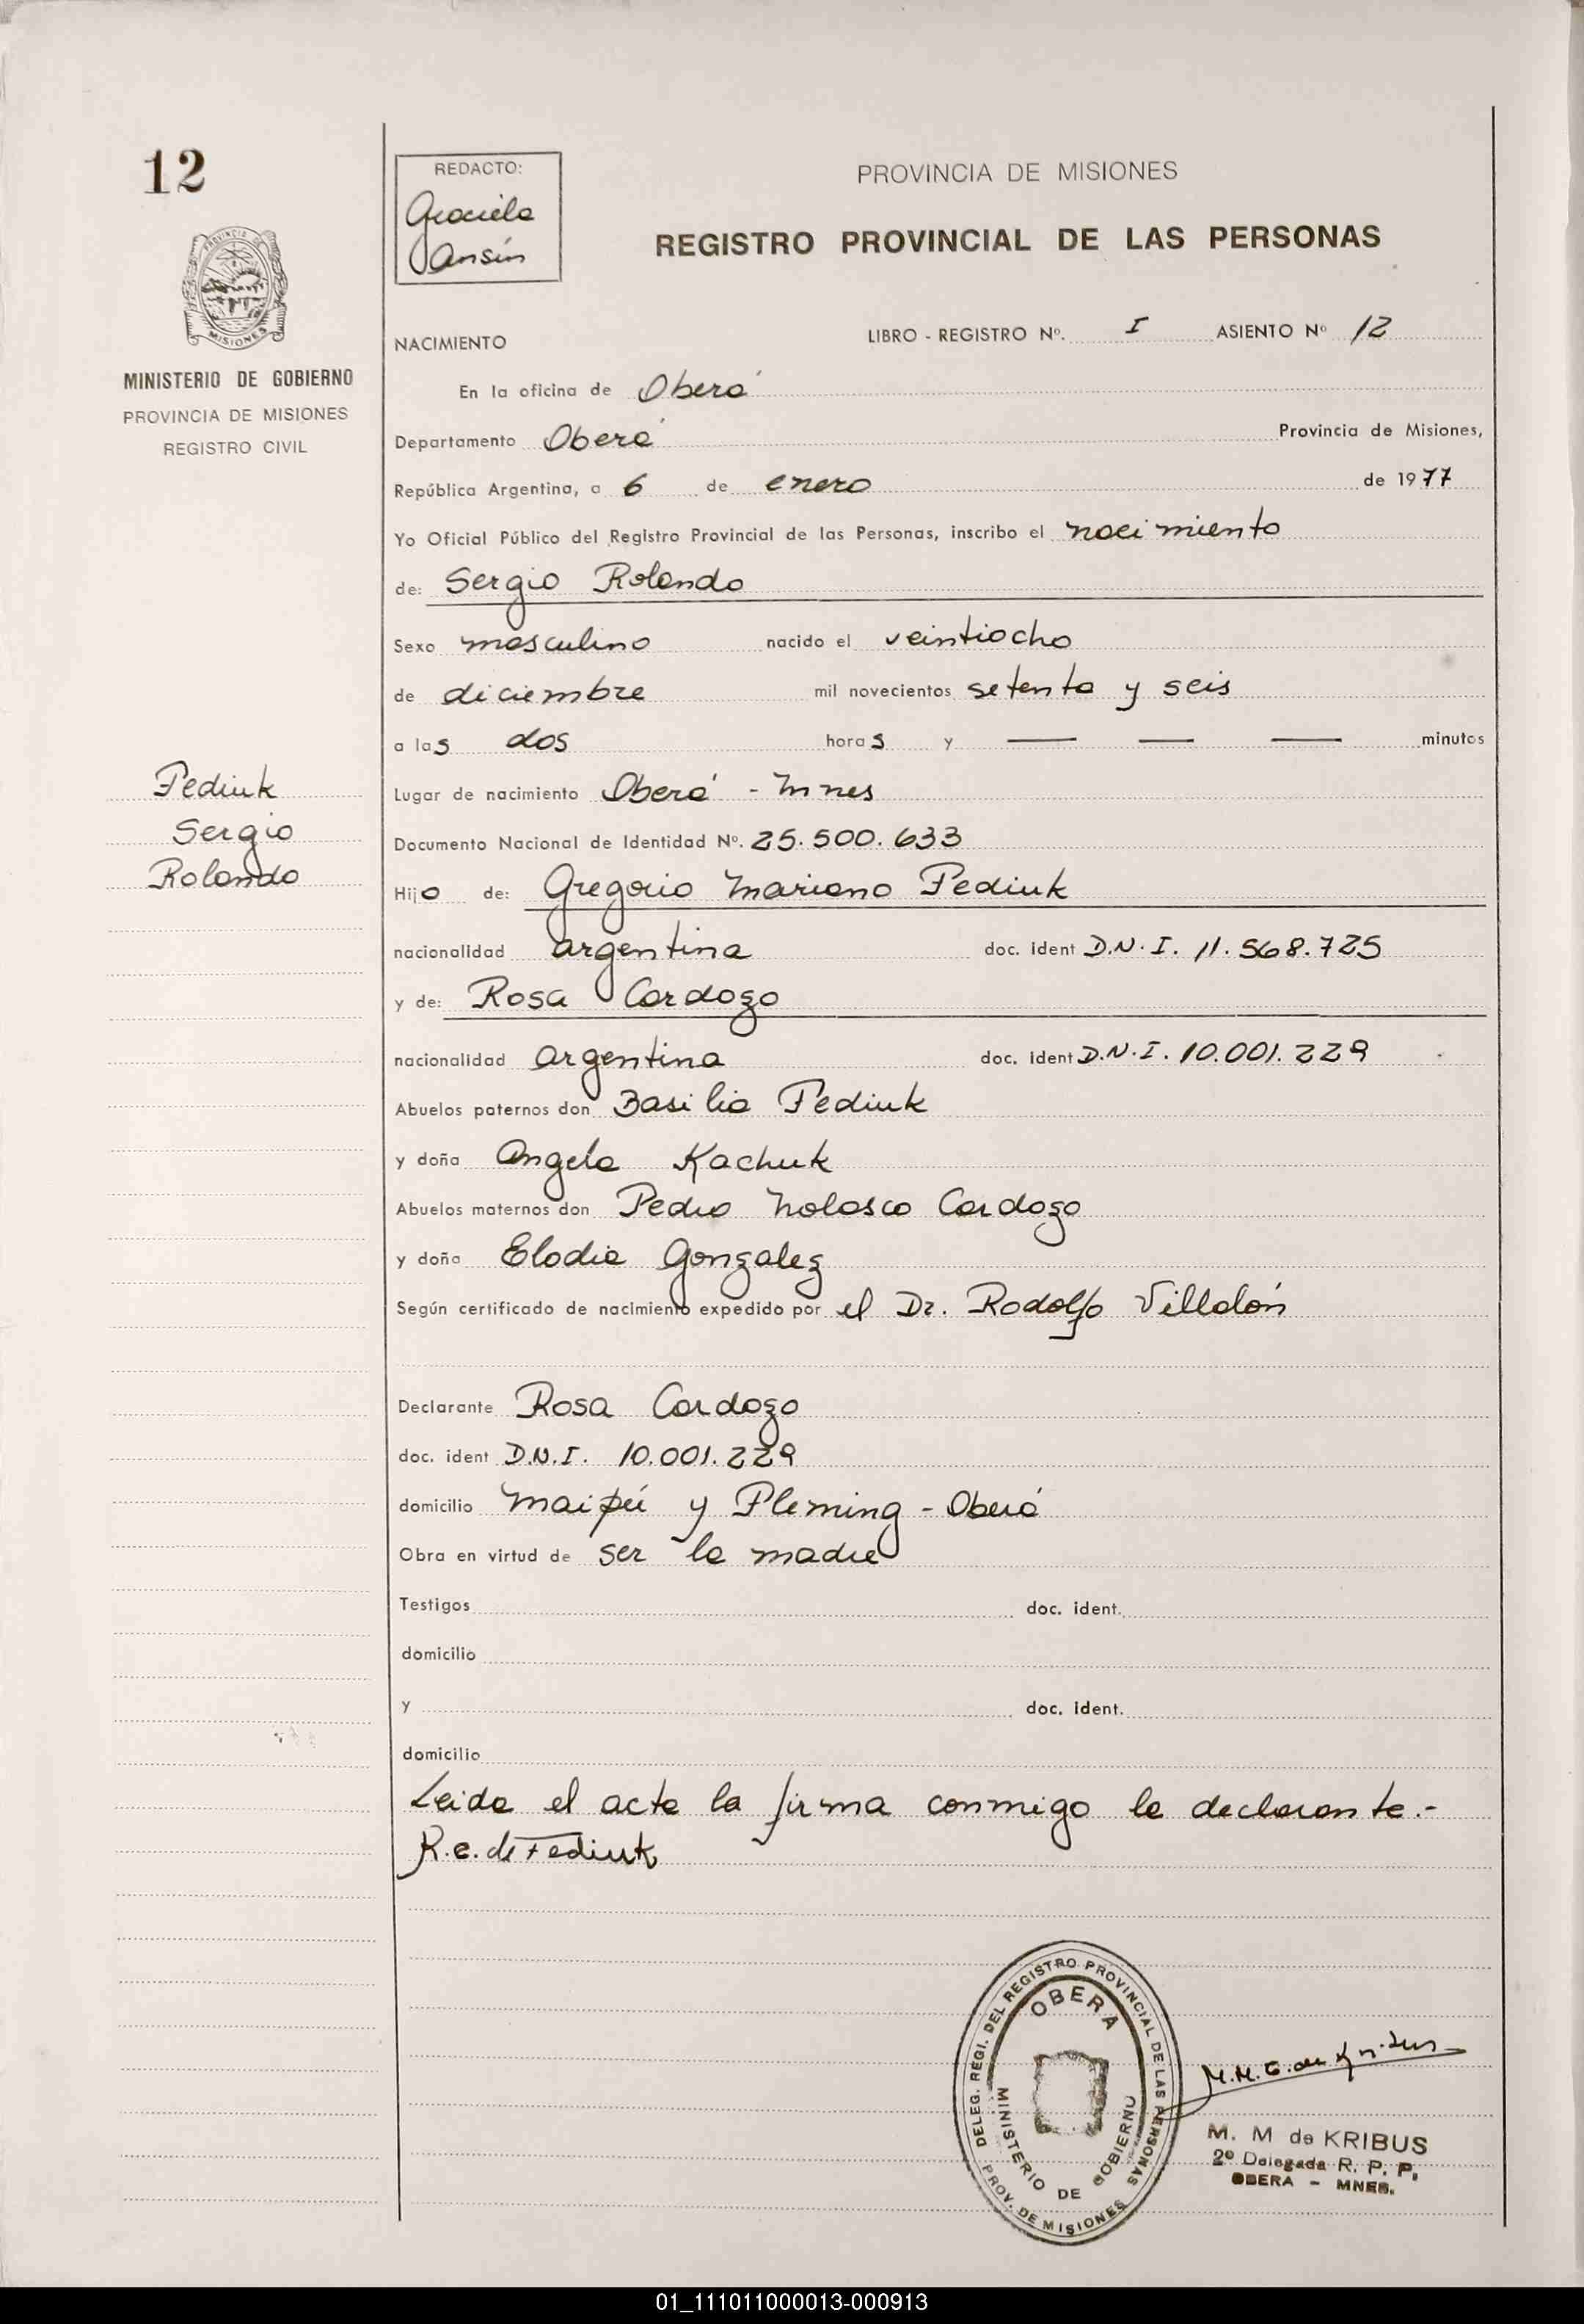 12
PROVINCIA DE MISIONES
MINISTERIO DE GOBIERNO
PROVINCIA DE MISIONES
REGISTRO CIVIL
Fediuk
Sergio
Rolando
REDACTO:
Graciela
Ansín
PROVINCIA DE MISIONES
REGISTRO PROVINCIAL DE LAS PERSONAS
NACIMIENTO LIBRO - REGISTRO Nº. I ASIENTO Nº 12
En la oficina de Oberá
Departamento Oberá Provincia de Misiones,
República Argentina, a 6 de enero de 1977
Yo Oficial Público del Registro Provincial de las Personas, inscribo el nacimiento
de: Sergio Rolando
Sexo masculino nacido el veintiocho
de diciembre mil novecientos setenta y seis
a las dos horas y — — — minutos
Lugar de nacimiento Oberá - Mnes
Documento Nacional de Identidad Nº. 25.500.633
Hijo de: Gregorio Mariano Fediuk
nacionalidad argentina doc. ident D.N.I. 11.568.725
y de: Rosa Cardozo
nacionalidad argentina doc. ident D.N.I. 10.001.229
Abuelos paternos don Basilio Fediuk
y doña Angela Kachuk
Abuelos maternos don Pedro Nolasco Cardozo
y doña Elodia Gonzalez
Según certificado de nacimiento expedido por el Dr. Rodolfo Villalón
Declarante Rosa Cardozo
doc. ident D.N.I. 10.001.229
domicilio Maipú y Fleming - Oberá
Obra en virtud de ser la madre
Testigos doc. ident.
domicilio
y doc. ident.
domicilio
Leida el acta la firma conmigo la declarante.-
R.C. de Fediuk
DELEG. REGI. DEL REGISTRO PROVINCIAL DE LAS PERSONAS
OBERA
MINISTERIO DE GOBIERNO
PROV. DE MISIONES
M. M de KRIBUS
2º Delegada R. P. P.
OBERA - MNES.
01_111011000013-000913